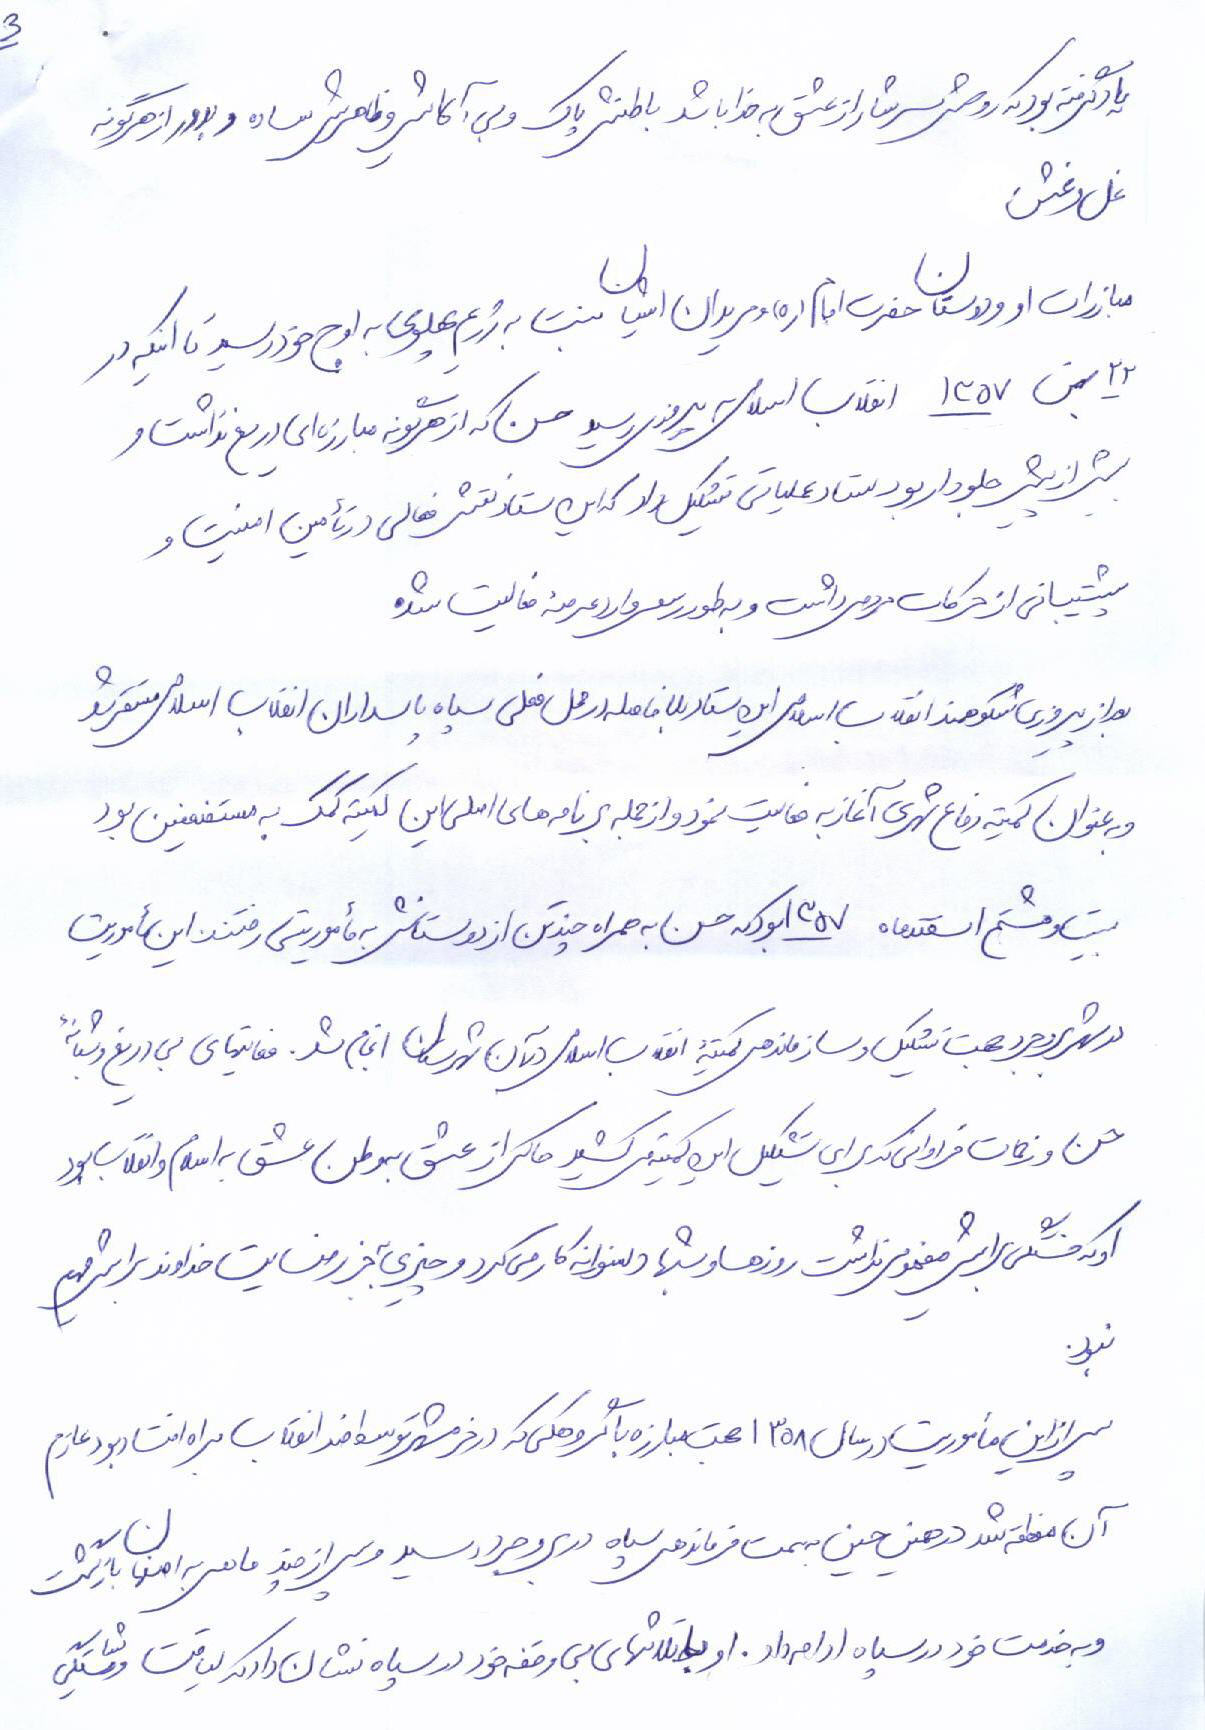 3
یاد گرفته بود که روحش سرشار از عشق به خدا باشد باطنش پاک و بی آلایش و ظاهرش ساده و بدور از هرگونه
غل و غش
مبارزات او و دوستان حضرت امام (ره) و مریدان ایشان نسبت به رژیم پهلوی به اوج خود رسید تا اینکه در
۲۲ بهمن ۱۳۵۷ انقلاب اسلامی به پیروزی رسید حسن که از هرگونه مبارزه ای دریغ نداشت و
بیش از پیش جلودار بود ستاد عملیاتی تشکیل داد که این ستاد نقش فعالی در تأمین امنیت و
پشتیبانی از حرکات مردمی داشت و به طور رسمی وارد عرصه فعالیت شد
بعد از پیروزی شکوهمند انقلاب اسلامی این ستاد بلافاصله در محل فعلی سپاه پاسداران انقلاب اسلامی مستقر شد
و به عنوان کمیته دفاع شهری آغاز به فعالیت نمود و از جمله برنامه های اصلی این کمیته کمک به مستضعفین بود
بیست و هشتم اسفندماه ۱۳۵۷ بود که حسن به همراه چند تن از دوستانش به مأموریتی رفتند این مأموریت
در شهر بروجرد جهت تشکیل و سازماندهی کمیتۀ انقلاب اسلامی در آن شهرستان انجام شد. فعالیتهای بی دریغ و شبانۀ
حسن و زحمات فراوانی که برای تشکیل این کمیته می کشید حاکی از عشق به وطن عشق به اسلام و انقلاب بود
او که خستگی برایش مفهومی نداشت روزها و شبها دلسوزانه کار می کرد و چیزی بجز رضایت خداوند برایش مهم
نبود.
پس از این مأموریت در سال ۱۳۵۸ جهت مبارزه با گروهکی که در خرمشهر توسط ضد انقلاب براه افتاده بود عازم
آن منطقه شد در همین حین به سمت فرماندهی سپاه در بروجرد رسید و پس از چند ماهی به اصفهان بازگشت
و به خدمت خود در سپاه ادامه داد. او با تلاشهای بی وقفه خود در سپاه نشان داد که لیاقت و شایستگی